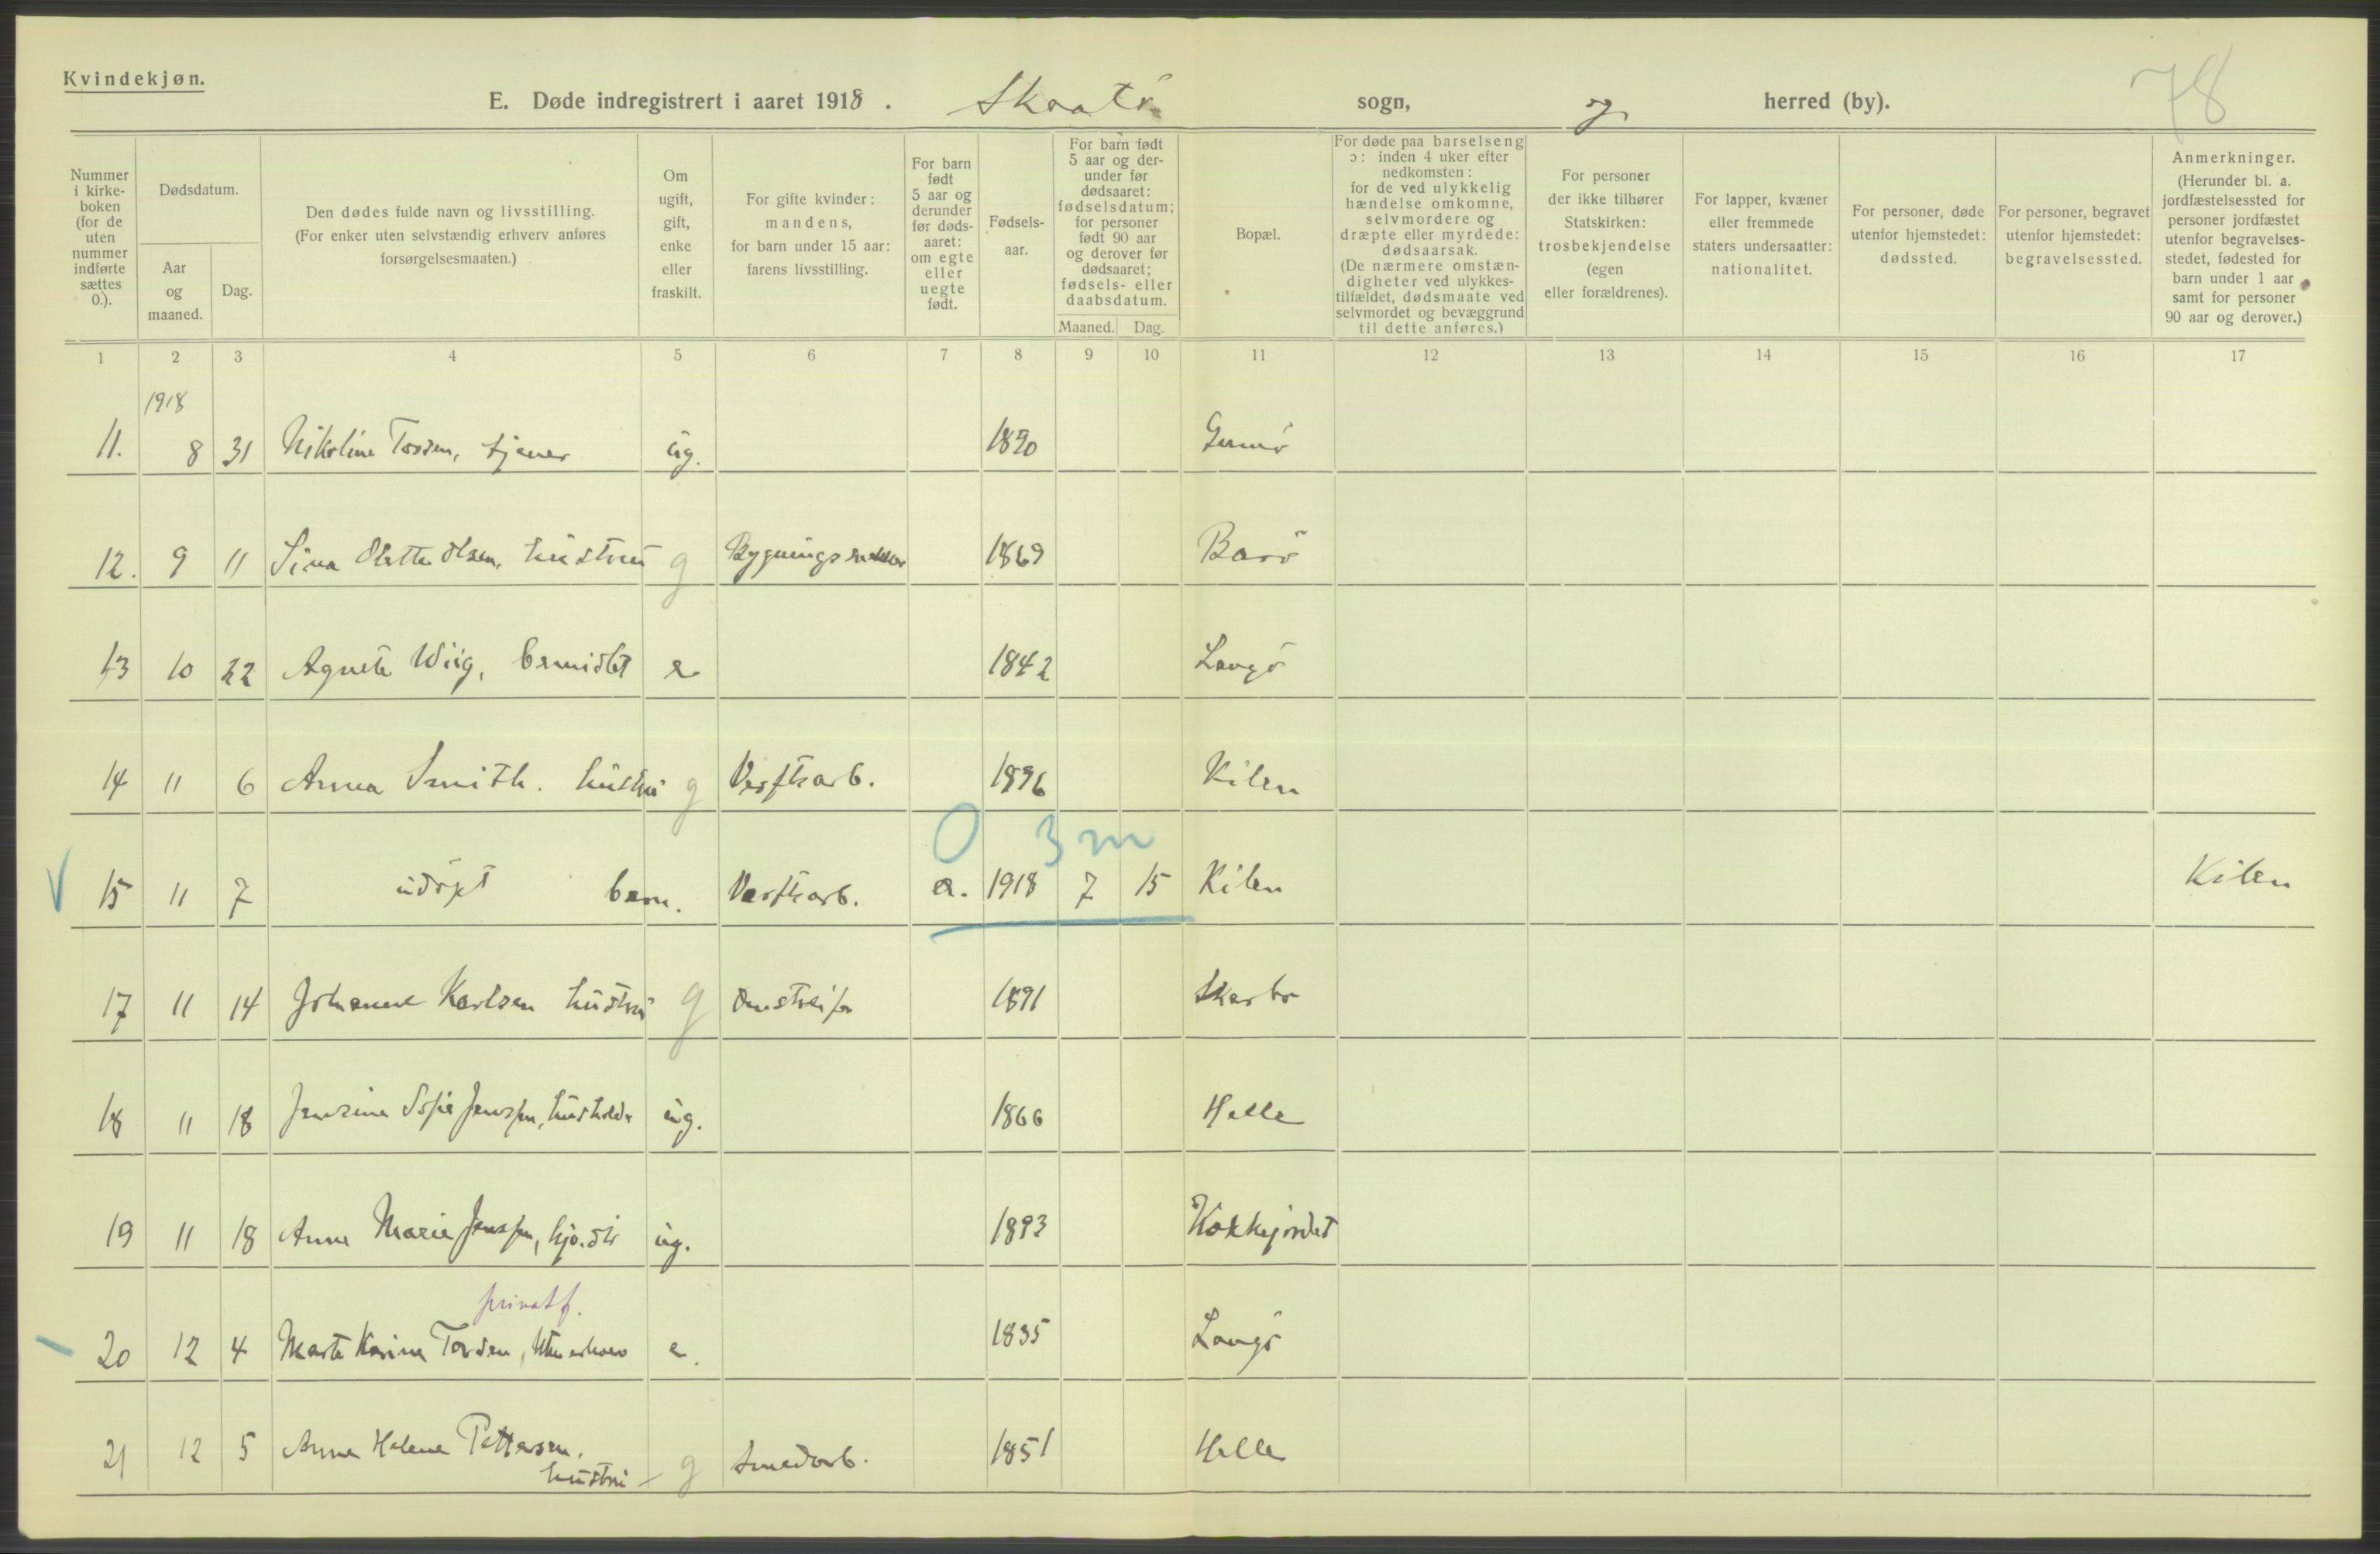 Kvindekjøn.
E. Døde indregistrert i aaret 1918. Skaatö sogn, og herred (by).
78
Nummer i kirkeboken (for de uten nummer indførte sættes 0.).
Dødsdatum.
Aar og maaned.
Dag.
Den dødes fulde navn og livsstilling. (For enker uten selvstændig erhverv anføres forsørgelsesmaaten.)
Om ugift, gift, enke eller fraskilt.
For gifte kvinder: mandens, for barn under 15 aar: farens livsstilling.
For barn født 5 aar og derunder før dødsaaret: om egte eller uegte født.
Fødselsaar.
For barn født 5 aar og derunder før dødsaaret: fødselsdatum; for personer født 90 aar og derover før dødsaaret; fødsels- eller daabsdatum.
Maaned. Dag.
Bopæl.
For døde paa barselseng ɔ: inden 4 uker efter nedkomsten: for de ved ulykkelig hændelse omkomne, selvmordere og dræpte eller myrdede: dødsaarsak. (De nærmere omstændigheter ved ulykkestilfældet, dødsmaate ved selvmordet og bevæggrund til dette anføres.)
For personer der ikke tilhører Statskirken: trosbekjendelse (egen eller forældrenes).
For lapper, kvæner eller fremmede staters undersaatter: nationalitet.
For personer, døde utenfor hjemstedet: dødssted.
For personer, begravet utenfor hjemstedet: begravelsessted.
Anmerkninger. (Herunder bl. a. jordfæstelsessted for personer jordfæstet utenfor begravelsesstedet, fødested for barn under 1 aar samt for personer 90 aar og derover.)
1 2 3 4 5 6 7 8 9 10 11 12 13 14 15 16 17
1918
11. 8 31 Nikoline Torsen, tjener ug. 1890 Gumö
12. 9 11 Sina Olette Olsen, hustru g Bygningssnekker 1869 Barö
13 10 22 Agnete Wiig, bemidlet e 1842 Langö
14 11 6 Anna Smith. hustru g Verftsarb. 1896 Kilen
0 3 m
V 15 11 7 udöpt barn. Verftsarb. e. 1918 7 15 Kilen Kilen
17 11 14 Johanne Karlsen hustru g 1891 Skarbo
18 11 18 Jensine Sofie Jenssen, hushold. ug. 1866 Helle
19 11 18 Anna Marie Jenssen, ug. 1893
privatf.
20 12 4 Marte Karine Torsen, Uten erhverv e. 1835 Langö
21 12 5 Anne Helene Pettersen.
hustru g Smedarb. 1851 Helle